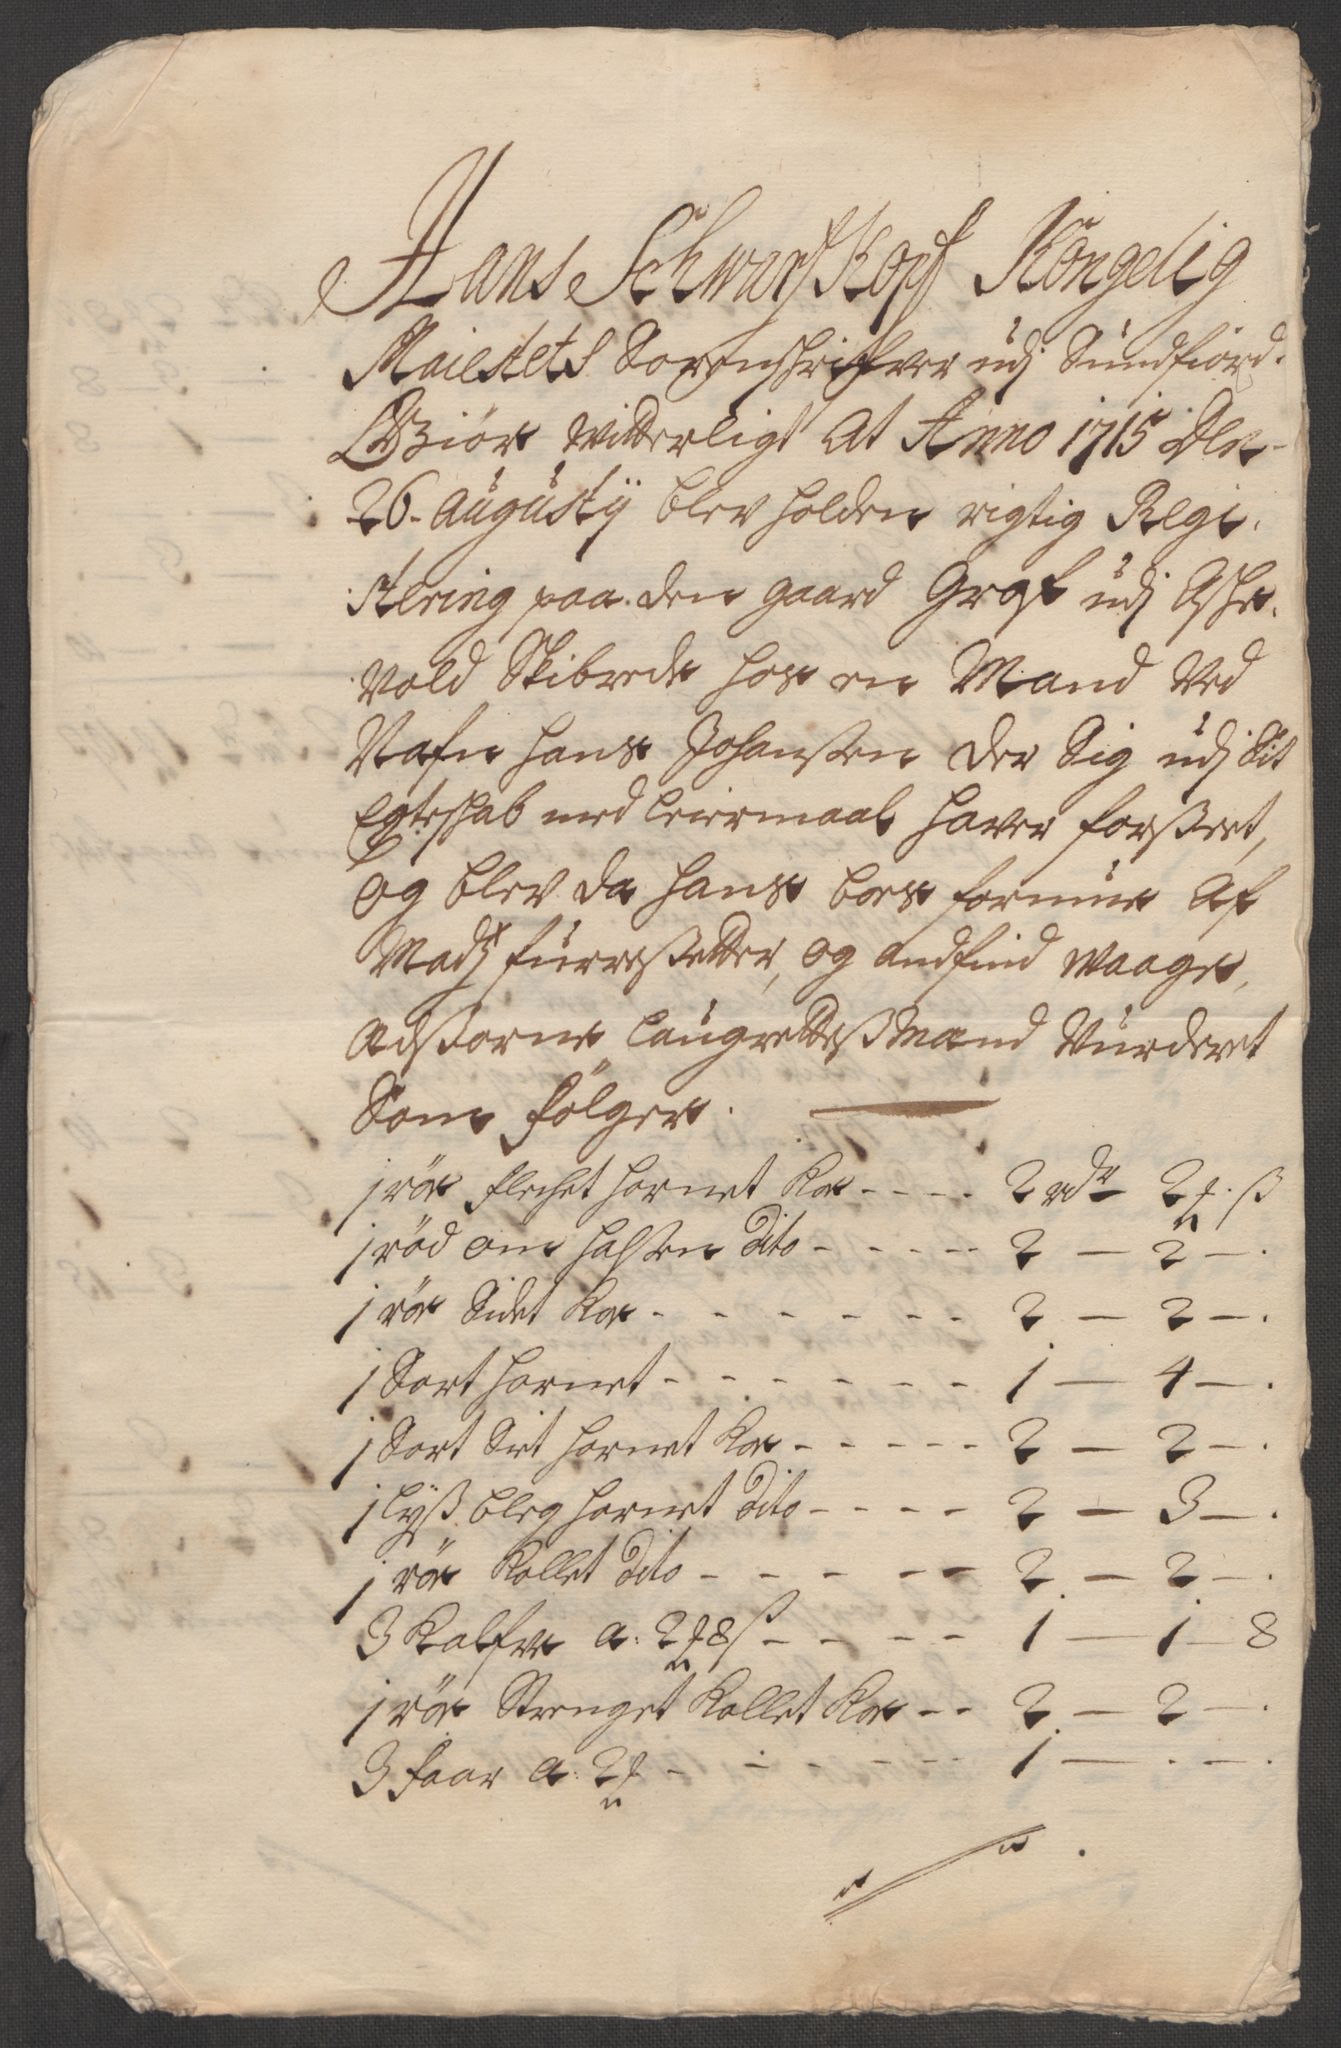 Hans Schwartzkopf Kongelig
Maiestets Sorenschrifver udj Sundfiord.
Giör witterligt At Anno 1715 Den
26. Augusty blev holden rigtig Regi-
stering paa den gaard Graf udj Aske-
vold Skibrede hos en Mand Ved
Nafn Hans Johanßen der Sig udj Sit
Egteskab med leiermaal haver forßeet,
og blev da hans boes formue Af
Madz furreßetter, og Andfind Waage,
Adsorne laugrettesMænd Vurderet
Som fölger.
1 röe flechet hornet Koe - - - - 2 rdr 2 ß
1 röd om halßen dito - - - - - 2 — 2 — .
1 röe Sidet Koe - - - - - - - 2 — 2 — .
1 Sort hornet - - - - - - - 1 — 4 — .
1 Sort Sit hornet Koe - - - - - 2 — 2 — .
1 lyß bleg hornet dito - - - - 2 — 3 — .
1 röe Kollet dito - - - - - 2 — 2 — .
3 Kalfve a: 2 8 ß - - - - 1 — 1 — 8
1 röe Strenget Kollet Koe - - 2 — 2 — .
3 faar a: 2 - - - - - - 1 — . — .